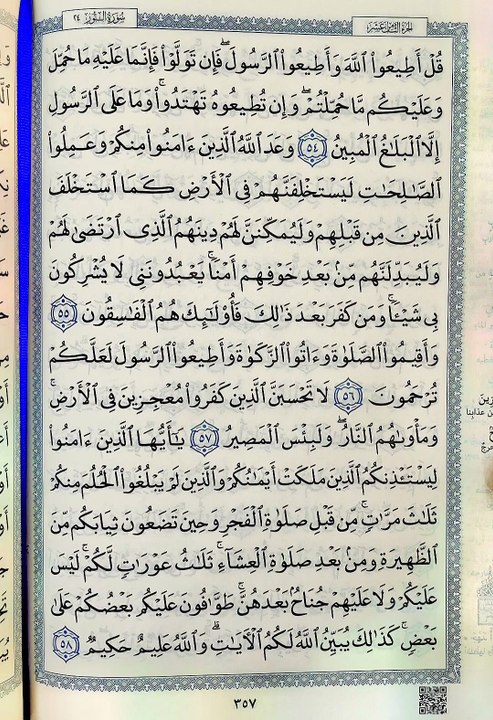 سُورَةُ النُّورِ ٢٤
الجزء الثامن عشر
قُلْ أَطِيعُوا۟ ٱللَّهَ وَأَطِيعُوا۟ ٱلرَّسُولَ ۖ فَإِن تَوَلَّوْا۟ فَإِنَّمَا عَلَيْهِ مَا حُمِّلَ
وَعَلَيْكُم مَّا حُمِّلْتُمْ ۖ وَإِن تُطِيعُوهُ تَهْتَدُوا۟ ۚ وَمَا عَلَى ٱلرَّسُولِ
إِلَّا ٱلْبَلَٰغُ ٱلْمُبِينُ ٥٤ وَعَدَ ٱللَّهُ ٱلَّذِينَ ءَامَنُوا۟ مِنكُمْ وَعَمِلُوا۟
ٱلصَّٰلِحَٰتِ لَيَسْتَخْلِفَنَّهُمْ فِى ٱلْأَرْضِ كَمَا ٱسْتَخْلَفَ
ٱلَّذِينَ مِن قَبْلِهِمْ وَلَيُمَكِّنَنَّ لَهُمْ دِينَهُمُ ٱلَّذِى ٱرْتَضَىٰ لَهُمْ
وَلَيُبَدِّلَنَّهُم مِّنۢ بَعْدِ خَوْفِهِمْ أَمْنًا ۚ يَعْبُدُونَنِى لَا يُشْرِكُونَ
بِى شَيْـًٔا ۚ وَمَن كَفَرَ بَعْدَ ذَٰلِكَ فَأُو۟لَٰٓئِكَ هُمُ ٱلْفَٰسِقُونَ ٥٥
وَأَقِيمُوا۟ ٱلصَّلَوٰةَ وَءَاتُوا۟ ٱلزَّكَوٰةَ وَأَطِيعُوا۟ ٱلرَّسُولَ لَعَلَّكُمْ
تُرْحَمُونَ ٥٦ لَا تَحْسَبَنَّ ٱلَّذِينَ كَفَرُوا۟ مُعْجِزِينَ فِى ٱلْأَرْضِ ۚ
وَمَأْوَىٰهُمُ ٱلنَّارُ ۖ وَلَبِئْسَ ٱلْمَصِيرُ ٥٧ يَٰٓأَيُّهَا ٱلَّذِينَ ءَامَنُوا۟
لِيَسْتَـْٔذِنكُمُ ٱلَّذِينَ مَلَكَتْ أَيْمَٰنُكُمْ وَٱلَّذِينَ لَمْ يَبْلُغُوا۟ ٱلْحُلُمَ مِنكُمْ
ثَلَٰثَ مَرَّٰتٍ ۚ مِّن قَبْلِ صَلَوٰةِ ٱلْفَجْرِ وَحِينَ تَضَعُونَ ثِيَابَكُم مِّنَ
ٱلظَّهِيرَةِ وَمِنۢ بَعْدِ صَلَوٰةِ ٱلْعِشَآءِ ۚ ثَلَٰثُ عَوْرَٰتٍ لَّكُمْ ۚ لَيْسَ
عَلَيْكُمْ وَلَا عَلَيْهِمْ جُنَاحٌۢ بَعْدَهُنَّ ۚ طَوَّٰفُونَ عَلَيْكُم بَعْضُكُمْ عَلَىٰ
بَعْضٍ ۚ كَذَٰلِكَ يُبَيِّنُ ٱللَّهُ لَكُمُ ٱلْـَٔايَٰتِ ۗ وَٱللَّهُ عَلِيمٌ حَكِيمٌ ٥٨
٣٥٧